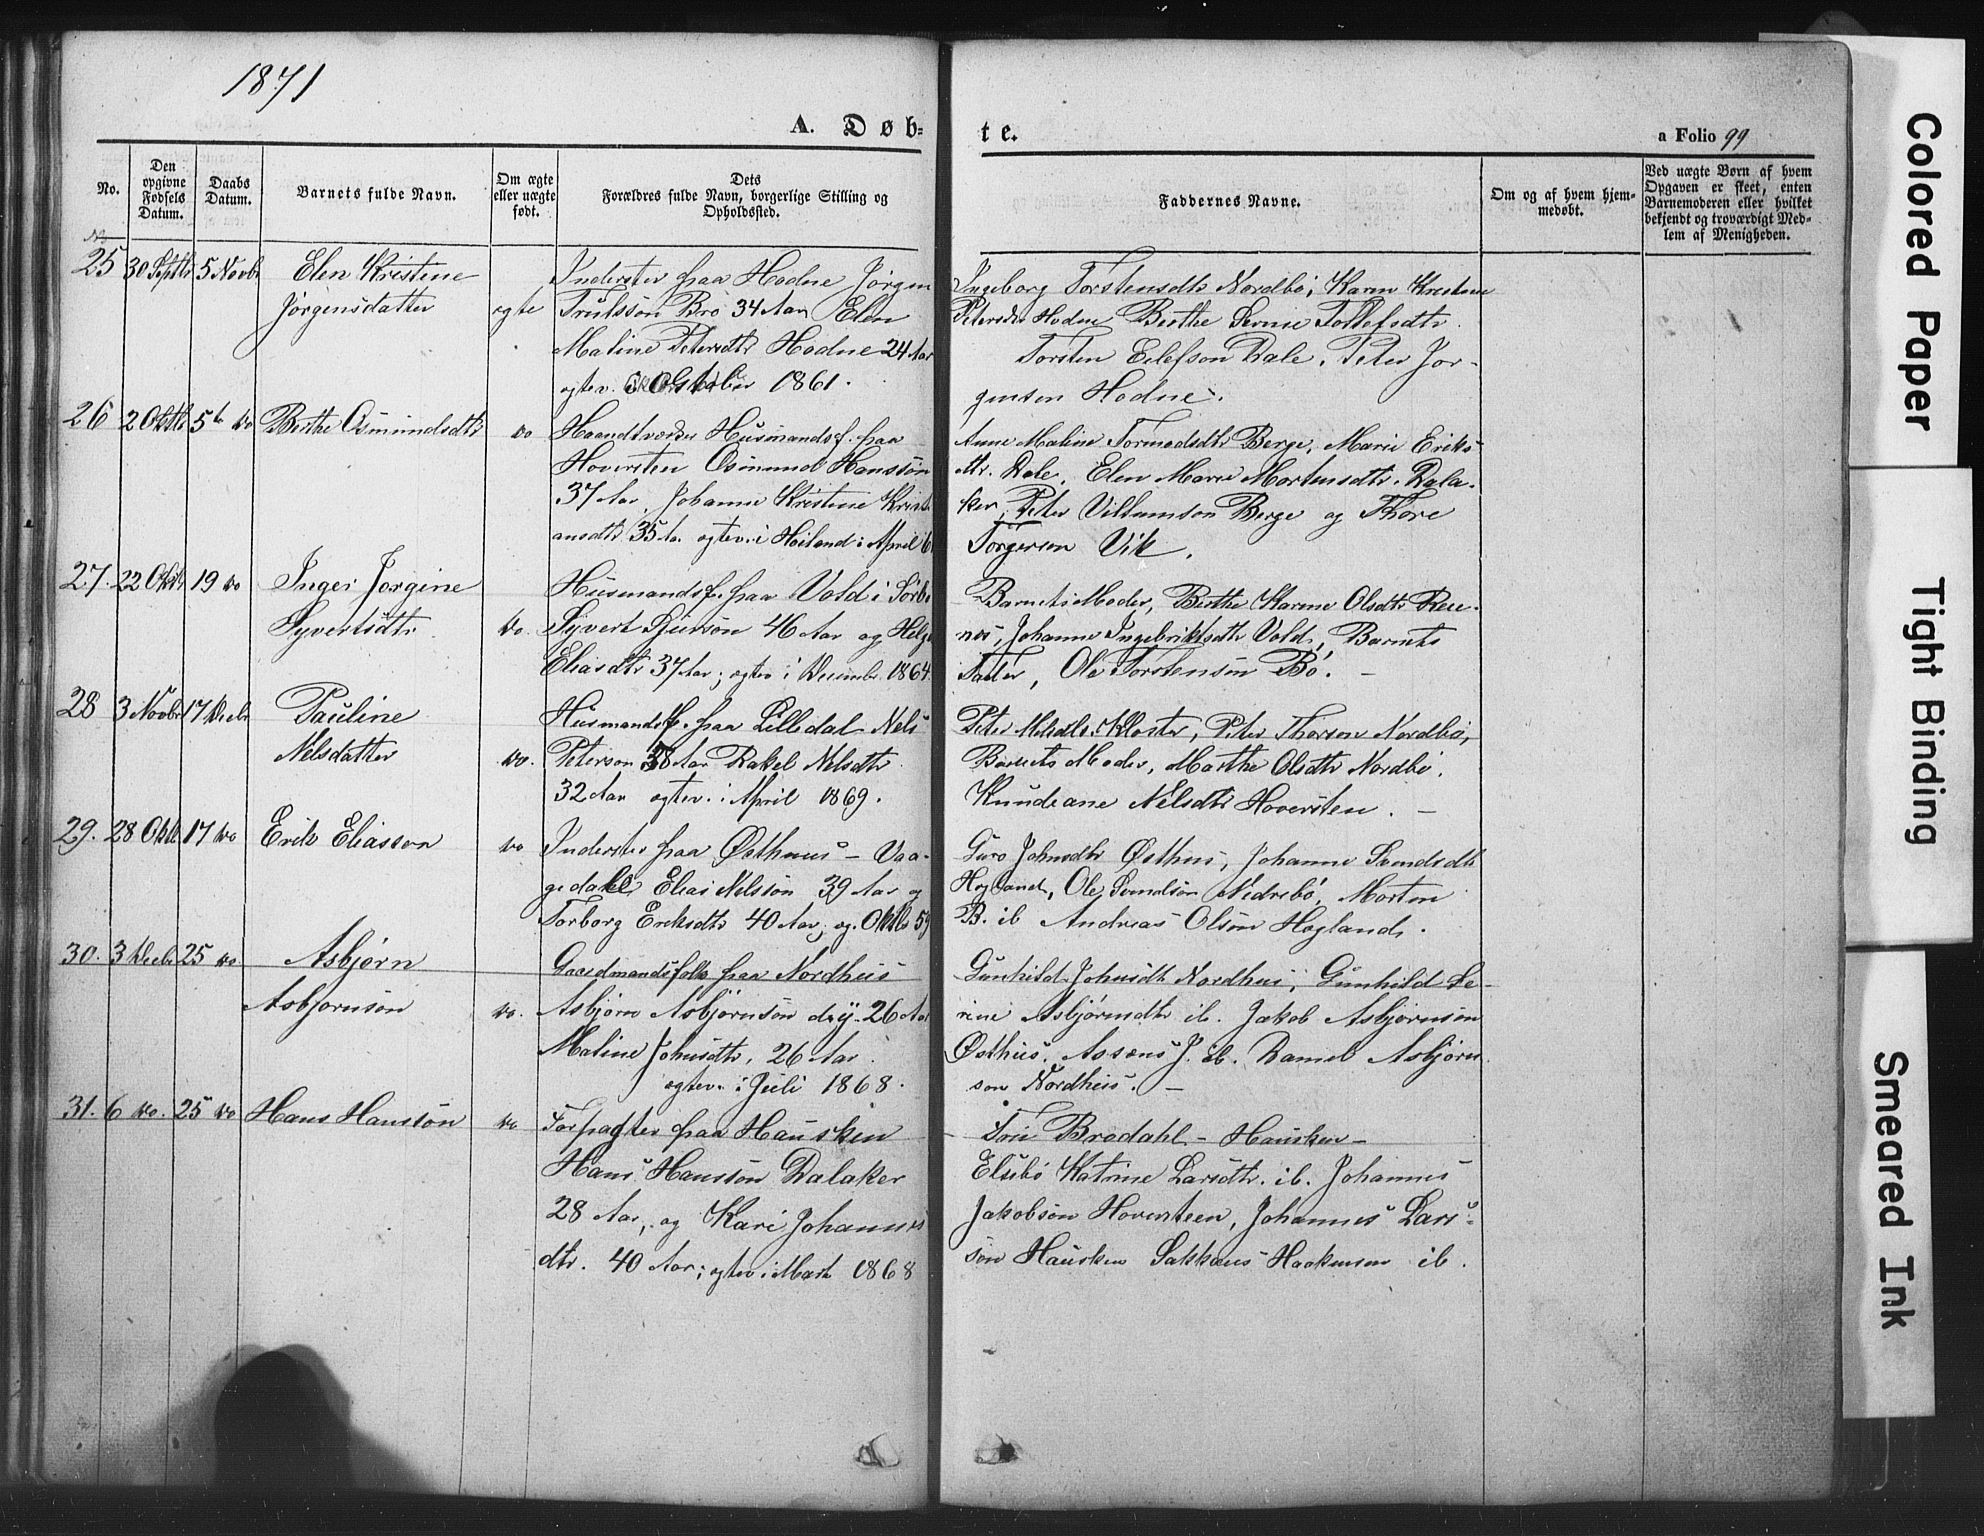 1871
A. Døb=
te.
a Folio 99
No.
Den opgivne Fødsels Datum.
Daabs Datum.
Barnets fulde Navn.
Om ægte eller uægte født.
Dets Forældres fulde Navn, borgerlige Stilling og Opholdssted.
Faddernes Navne.
Om og af hvem hjem-
medøbt.
Ved uægte Børn af hvem
Opgaven er skeet, enten
Barnemoderen eller hvilket
bekjendt og troværdigt Med-
lem af Menigheden.
No
25 30 Septbr 5 Novbr Elen Kristine
Jørgensdatter
ægte
Inderster fraa Hodne Jørgen
Trulsson Bro 34 Aar Elen
Maline Petersdtr Hodne 24 Aar
ægtev. Oktober 1861.
Ingeborg Torstensdtr Nordbö, Karen Kristine
Petersdtr Hodne Berthe Serine Tollefsdtr.
Torsten Eilefson Dale, Peter Jör-
gensen Hodne.
26 2 Oktbr 5te do Berthe Osmundsdtr do
Haandtværker Husmandsf. fraa
Hoversten Osmund Hanssön
37 Aar Johanne Kristine Kristi
ansdtr 35 Aa. ægtev. i Höiland i April
Anne Maline Tormodsdtr Berge, Marie Eriks-
dtr. Dale, Elen Marie Mortensdtr. Dala-
ker, Peter Villumson Berge og Thore
Torgersen Vik.
27. 22 Oktbr 19 do Inger Jorgine
Syvertsdtr do.
Husmandsf. fraa Vold i Sörb
Syvert Sjursön 46 Aar og Helge
Eliasdtr 37 Aar; ægtev i Decembr. 1864.
Barnets Moder, Berthe Karine Olsdtr Ren-
nes, Johanne Ingebriktsdtr Vold, Barnets
Fader, Ole Torstensön Bö. -
28 3 Novbr 17 Decbr Pauline
Nelsdatter do.
Husmandsf. fraa Lilledal Nels
Peterson 38 Aar Rakel Nelsdtr
32 Aar ægtev. i April 1869.
Peter Kloster, Peter Thorson Nordbö,
Barnets Moder, Marthe Olsdtr Nordbö.
Knudeane Nelsdtr Hoversten. -
29. 28 Oktbr 17 do Erik Eliasson do
Inderster fraa Østhuus - Vaa-
gedahl Elias Nelssön 39 Aar og
Torborg Eriksdtr 40 Aar; æg. Oktbr 59
Guro Johnsdtr Østhus, Johanne Svendsdtr
Hogland, Ole Svendsön Nedrebö, Morten
B. ib Andreas Olsön Hogland.
30. 3 Decbr 25 do. Asbjørn
Asbjornsön do.
Gaardmandsfolk fraa Nordhus
Asbjørn Asbjörnsön d.y. 26 Aar
Maline Johnsdtr. 26 Aar.
ægtev. i Juli 1868.
Gunhild Johnsdtr Nordhus, Gunhild Se-
rine Asbjörnsdtr ib. Jakob Asbjörnsön
Østhus. Assens J. ib. Daniel Asbjörn
son Nordhus. -
31. 6 do. 25 do Hans Hanssön do
Forpagter fraa Hausken
Hans Hanssön Dalaker
28 Aar, og Kari Johannes
dtr. 40 Aar; ægtev i Marts 1868
Brodahl - Hausken -
Elsebö Katrine Larsdtr. ib. Johannes
Jakobsön Hoversteen, Johannes Lars-
sön Hausken Sakkæus Haakensen ib.
Colored Paper
Tight Binding
Smeared Ink